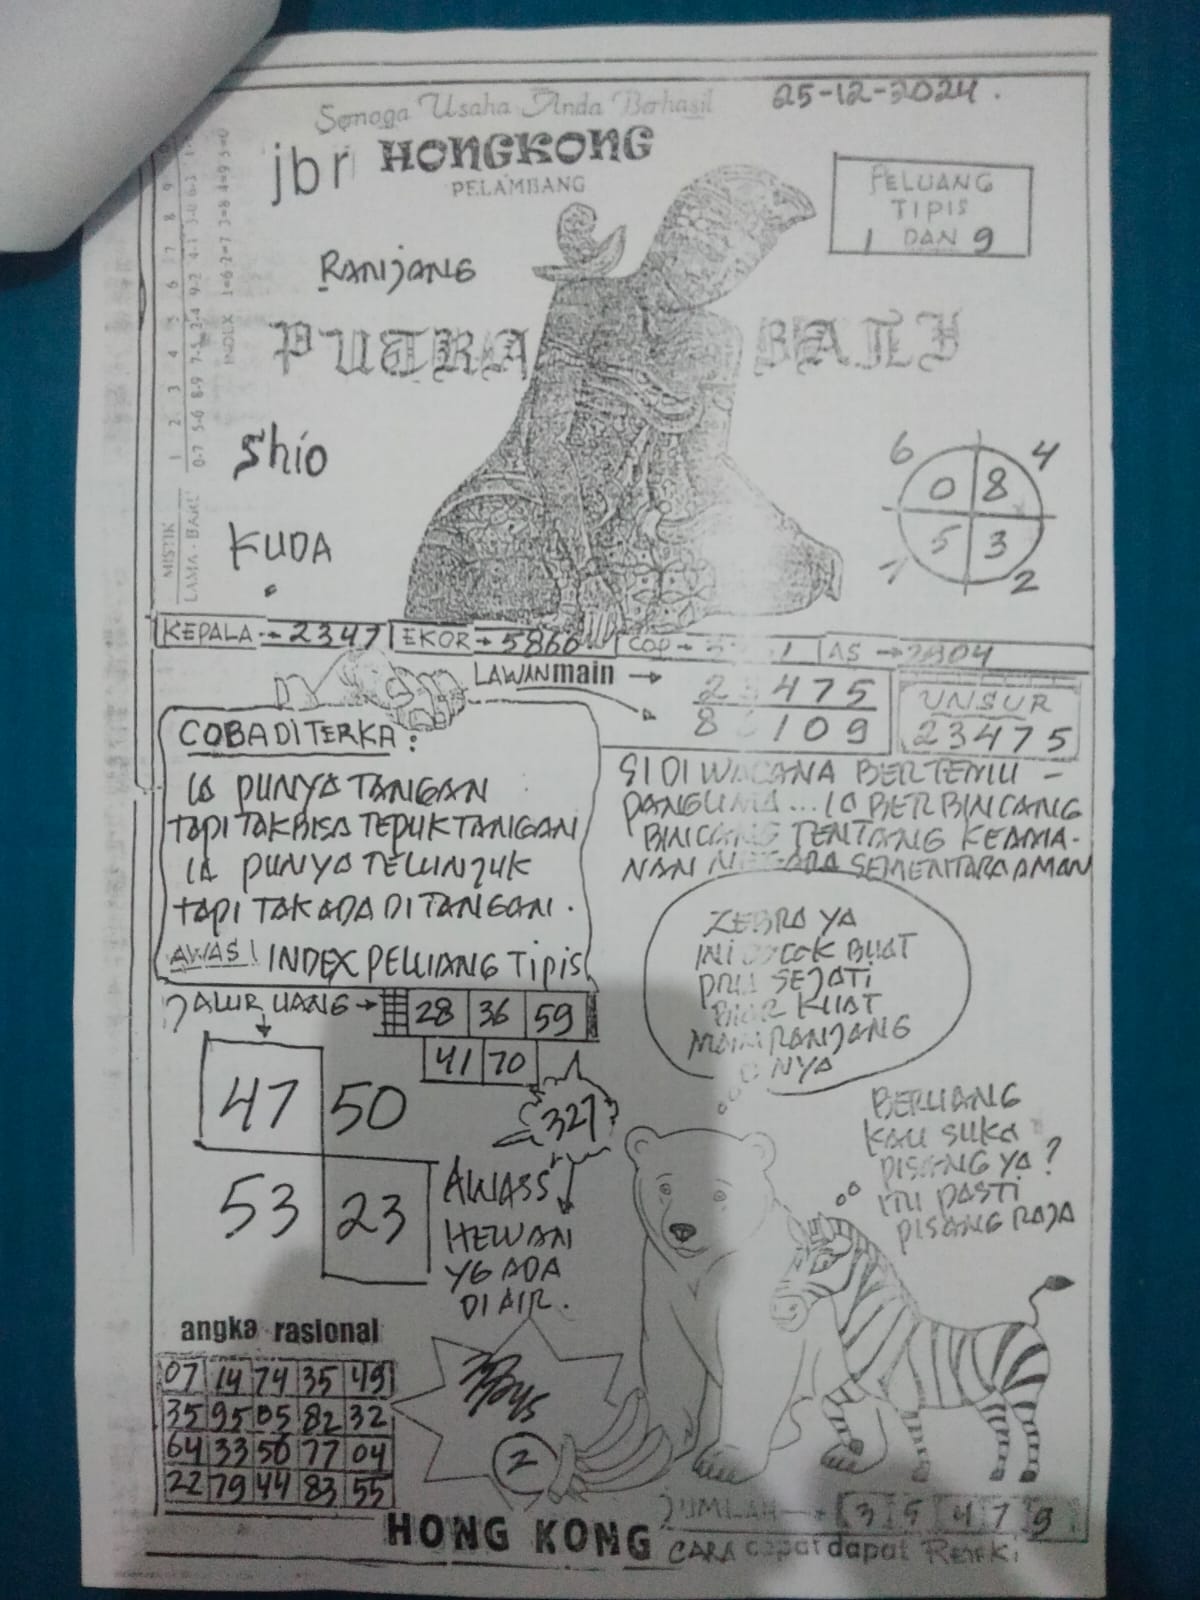 Semoga Usaha Anda Berhasil
25-12-2024.
jbr HONGKONG
PELAMBANG
PELUANG
TIPIS
1 DAN 9
RANJANG
PUTRA BALI
Shio
KUDA
6 4
0 8
5 3
7 2
MISTIK
LAMA - BARU
INDEX 1=6 2=7 3=8 4=9 5=0
KEPALA → 2347 EKOR → 5860 COP → AS → 2804
LAWAN main → 2 475
8 109
UNSUR
23475
COBA DITERKA :
IA PUNYA TANGAN
TAPI TAK BISA TEPUK TANGAN
IA PUNYA TELUNJUK
TAPI TAK ADA DI TANGAN.
AWAS! INDEX PELUANG TIPIS
SI DI WACANA BERTEMU -
PANGLIMA... IA BERBINCANG
BINCANG TENTANG KEAMA-
NAN NEGARA SEMENTARA AMAN
ZEBRA YA
INI COCOK BUAT
PRIA SEJATI
BIAR KUAT
MAIN RANJANG
NYA
JALUR UANG → 28 36 59
41 70
47 50
53 23
327
AWASS
HEWAN
YG ADA
DI AIR.
BERUANG
KAU SUKA
PISANG YA ?
ITU PASTI
PISANG RAJA
angka rasional
07 14 74 35 49
35 95 05 82 32
64 33 50 77 04
22 79 44 83 55
2
JUMLAH → 3 5 4 7 9
HONG KONG
CARA cepat dapat Rezeki